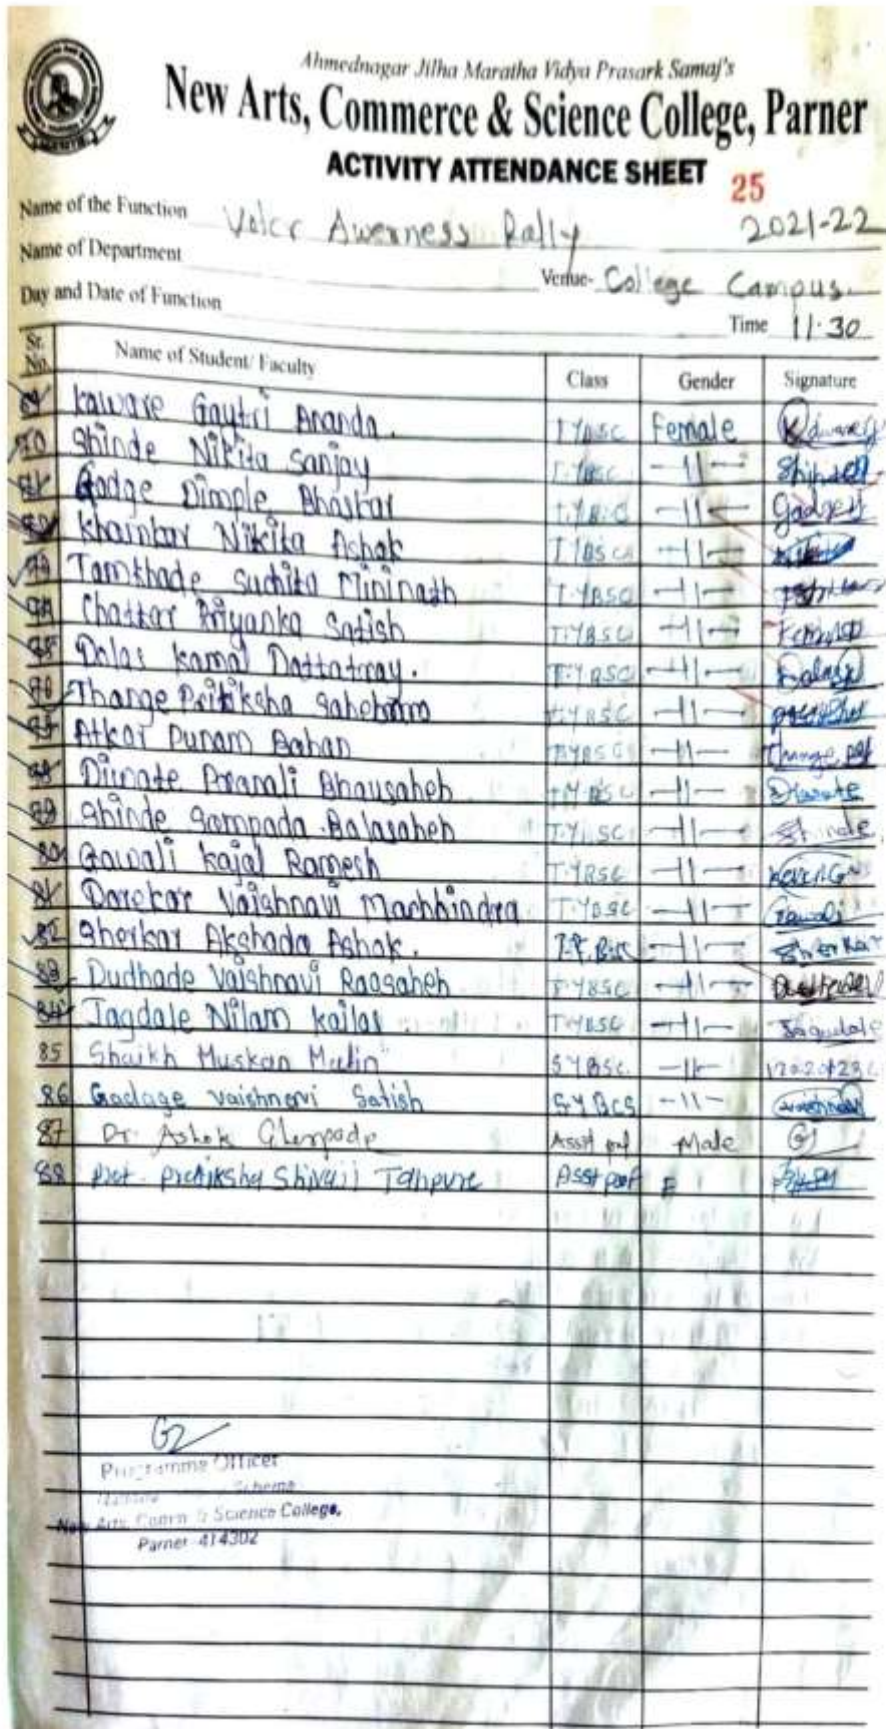 Ahmednagar Jilha Maratha Vidya Prasark Samaj's
New Arts, Commerce & Science College, Parner
ACTIVITY ATTENDANCE SHEET 25
Name of the Function Voter Awerness Rally 2021-22
Name of Department Venue- College Campus.
Day and Date of Function Time 11.30
Sr. No. Name of Student/ Faculty Class Gender Signature
Kaware Gaytri Ananda. TYBSC Female
70 Shinde Nikita Sanjay T.YBSC -11- Shinde
Godge Dimple Bhaskar T.YBSC -11-
Khainkar Nikita Ashok TYBSC -11-
Tamkhade Suchita Mininath T.YBSC -11-
Chattar Priyanka Satish T.YBSC -11-
Dalas Kamal Dattatray. T.YBSC -11-
Thange Pritiksha Sahebram T.YBSC -11-
Atkar Punam Baban TYBSC -11- Thange
Diwate Pranali Bhausaheb T.YBSC -11- Diwate
79 Shinde Sampada Balasaheb T.Y.SC -11- Shinde
80 Gawali Kajal Ramesh T.YBSC -11-
81 Darekar Vaishnavi Machhindra T.YBSC -11- Gawali
82 Sherkar Akshada Ashok. T.Y.BSC -11- Sherkar
83 Dudhade Vaishnavi Raosaheb T.YBSC -11-
84 Jagdale Nilam Kailas T.YBSC -11- Jagdale
85 Shaikh Muskan Matin SYBSC -11-
86 Gadage Vaishnavi Satish SYBCS -11- Vaishnavi
87 Dr. Ashok Ghorpade Asst prof Male
88 Prof. Pratiksha Shivaji Tanpure Asst prof F
Programme Officer
Scheme
New Arts, Comm & Science College,
Parner 414302